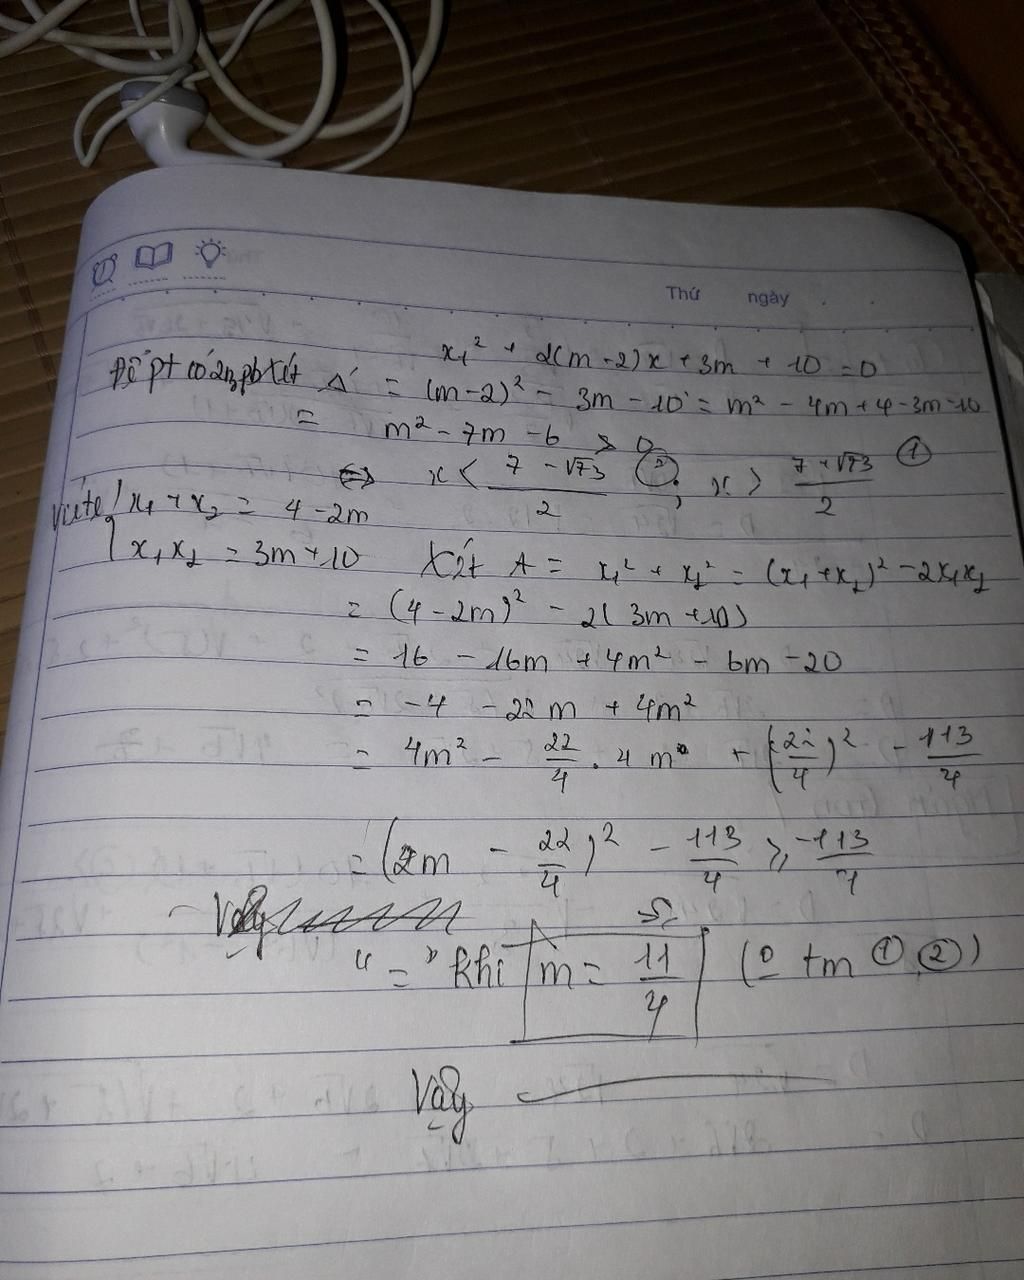 Thứ ngày
x₁² + 2(m-2)x + 3m + 10 = 0
Để pt có 2n pb Xét Δ' = (m-2)² - 3m - 10 = m² - 4m + 4 - 3m - 10
= m² - 7m - 6 > 0
⇔ x < (7 - √73)/2 ②; x > (7 + √73)/2 ①
Viète { x₁ + x₂ = 4 - 2m
x₁x₂ = 3m + 10 Xét A = x₁² + x₂² = (x₁ + x₂)² - 2x₁x₂
= (4 - 2m)² - 2(3m + 10)
= 16 - 16m + 4m² - 6m - 20
= -4 - 22m + 4m²
= 4m² - 22/4 . 4m + (22/4)² - 113/4
= (2m - 22/4)² - 113/4 ≥ -113/4
"=" khi m = 11/4 (0 tm ①, ②)
Vậy